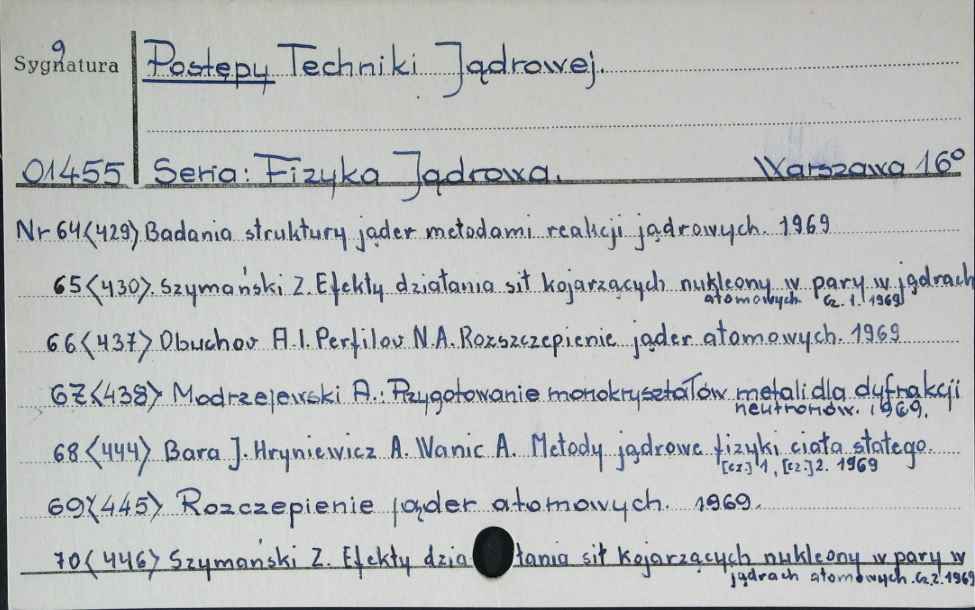 g
Sygnatura Postępy Techniki Jądrowej.
01455 Seria: Fizyka Jądrowa. Warszawa 16°
Nr 64<429> Badania struktury jąder metodami reakcji jądrowych. 1969
65<430>. Szymański Z. Efekty działania sił kojarzących nukleony w pary w jądrach
atomowych. Cz. 1. 1969
66<437> Obuchov A.I. Perfilov N.A. Rozszczepienie jąder atomowych. 1969
67<438> Modrzejewski A.: Przygotowanie monokryształów metali dla dyfrakcji
neutronów. 1969.
68<444> Bara J. Hryniewicz A. Wanic A. Metody jądrowe fizyki ciała stałego.
[cz.] 1, [cz.] 2. 1969
69<445> Rozczepienie jąder atomowych. 1969.
70<446> Szymański Z. Efekty działania sił kojarzących nukleony w pary w
jądrach atomowych. Cz. 2. 1969